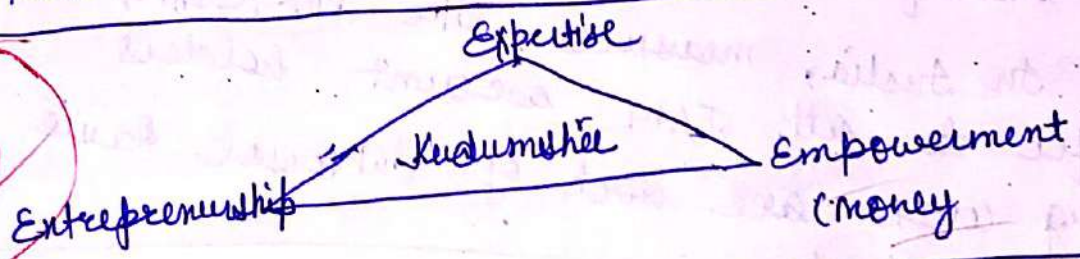 Expertise
Kudumshée
Entreprenurship
Empowerment
(money